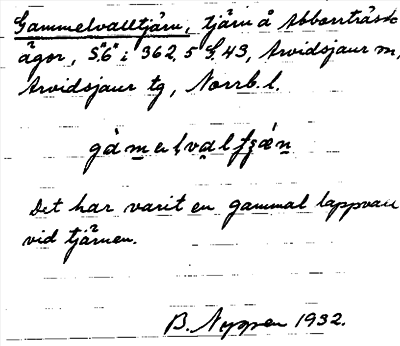 Gammelvalltjärn, tjärn å Abborrträsk
ägor, S"6" i 362, 5 G. 43, Arvidsjaur sn,
Arvidsjaur tg, Norrb. l.
Det har varit en gammal lappvall
vid tjärnen.
B. Nyppen 1932.